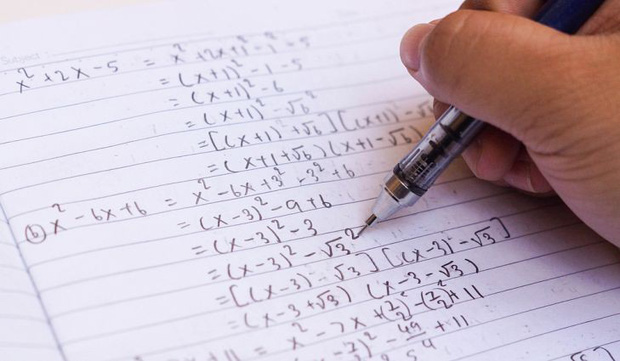 Subject
x² + 2x - 5 = x² + 2x + 1² - 1² - 5
= (x+1)² - 1 - 5
= (x+1)² - 6
= (x+1)² - √6²
= [(x+1) + √6] [(x+1) - √6]
= (x+1+√6) (x+1-√6)
(b) x² - 6x + 6 = x² - 6x + 3² - 3² + 6
= (x-3)² - 9 + 6
= (x-3)² - 3
= (x-3)² - √3²
= [(x-3) - √3] [(x-3) - √3]
= (x-3+√3) (x-3-√3)
+ 11 = x² - 7x + (7/2)² - (7/2)² + 11
)² - 49/4 + 11
5